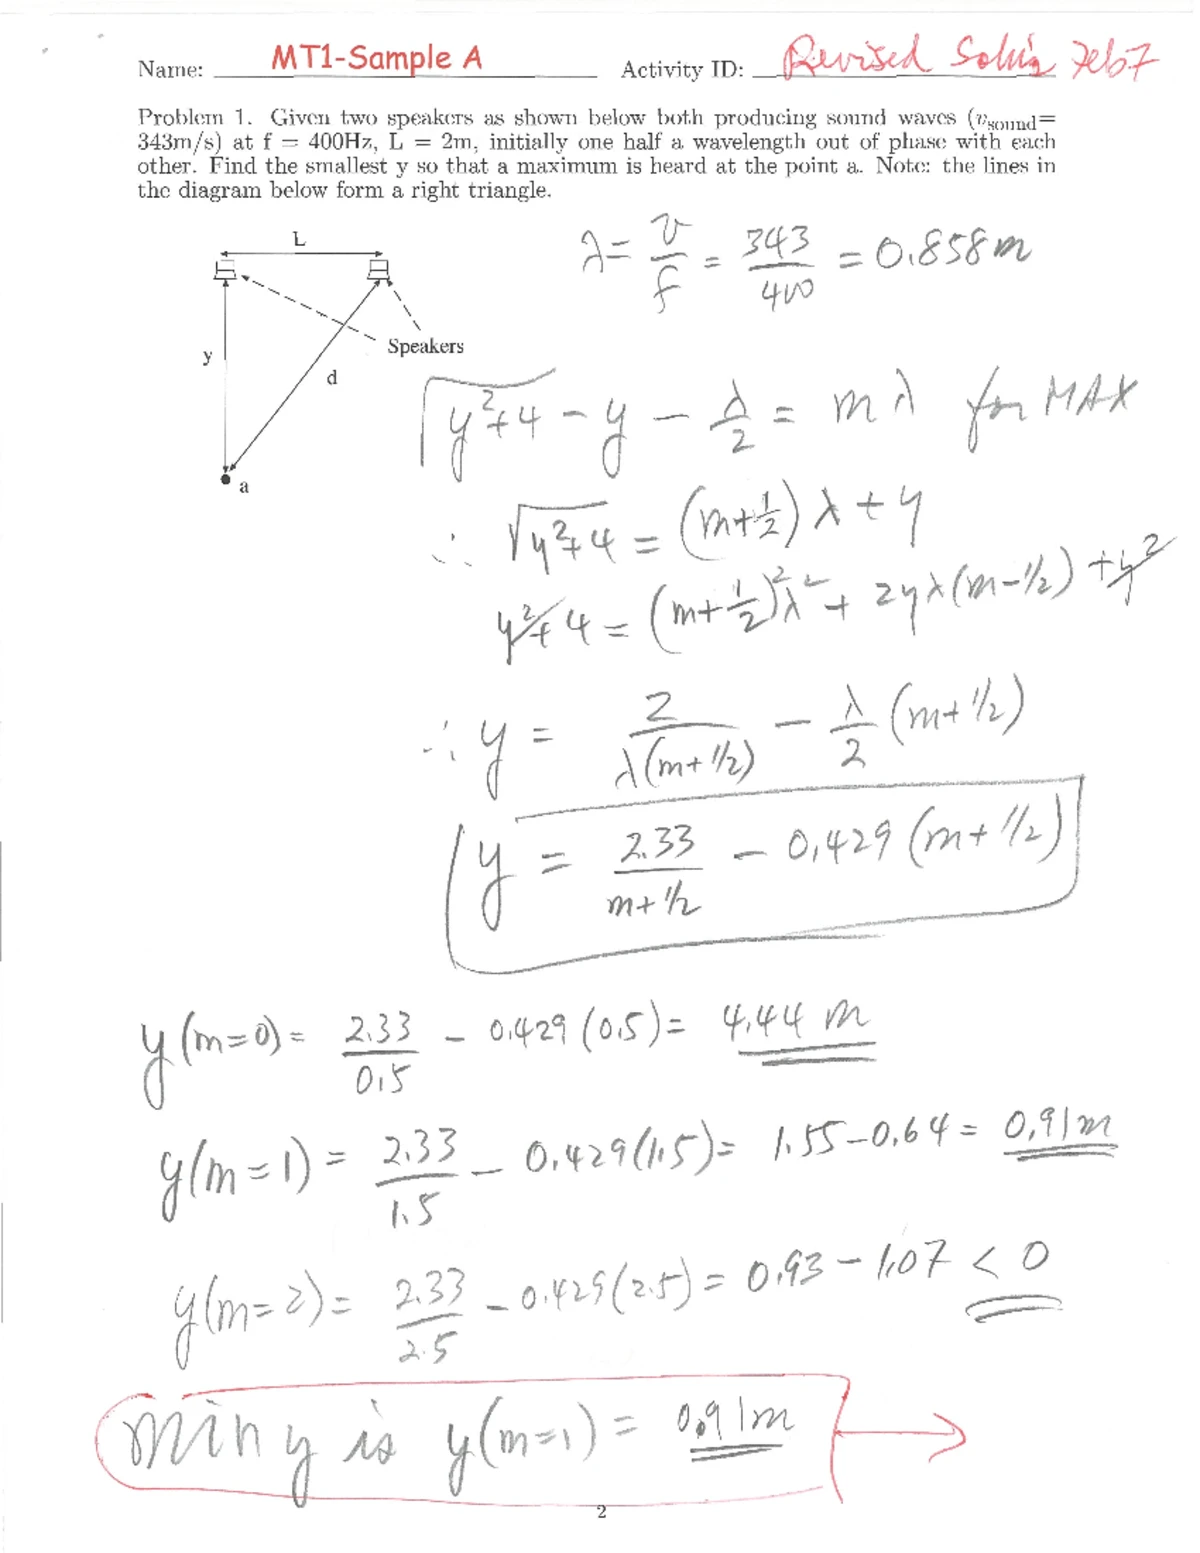 Name: MT1-Sample A Activity ID: Revised Soln's Feb7
Problem 1. Given two speakers as shown below both producing sound waves (v_sound=
343m/s) at f = 400Hz, L = 2m, initially one half a wavelength out of phase with each
other. Find the smallest y so that a maximum is heard at the point a. Note: the lines in
the diagram below form a right triangle.
L
y
d
Speakers
a
λ = v/f = 343/400 = 0.858m
√(y²+4) - y - λ/2 = mλ for MAX
∴ √(y²+4) = (m+1/2)λ + y
y²+4 = (m+1/2)²λ² + 2yλ(m-1/2) + y²
∴ y = 2/(λ(m+1/2)) - λ/2 (m+1/2)
y = 2.33/(m+1/2) - 0.429 (m+1/2)
y(m=0) = 2.33/0.5 - 0.429(0.5) = 4.44 m
y(m=1) = 2.33/1.5 - 0.429(1.5) = 1.55-0.64 = 0.91m
y(m=2) = 2.33/2.5 - 0.429(2.5) = 0.93 - 1.07 < 0
min y is y(m=1) = 0.91m
2